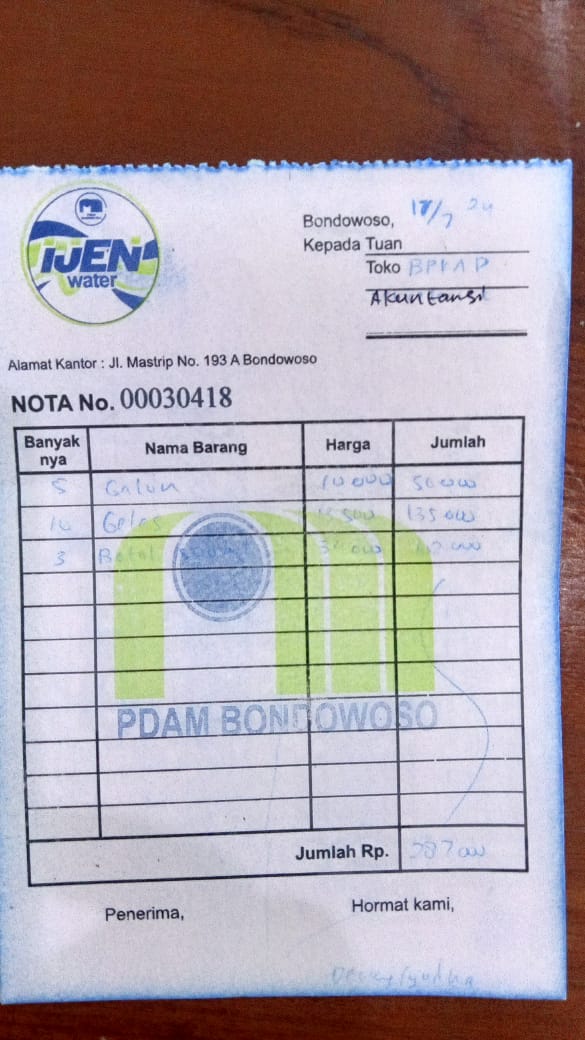 IJEN
water
Bondowoso, 17/7 24
Kepada Tuan
Toko BPKAD
Akuntansi
Alamat Kantor : Jl. Mastrip No. 193 A Bondowoso
NOTA No. 00030418
Banyak nya Nama Barang Harga Jumlah
5 Galon 10 000 50 000
10 Gelas 13 500 135 000
3 Botol
PDAM BONDOWOSO
Jumlah Rp.
Penerima, Hormat kami,